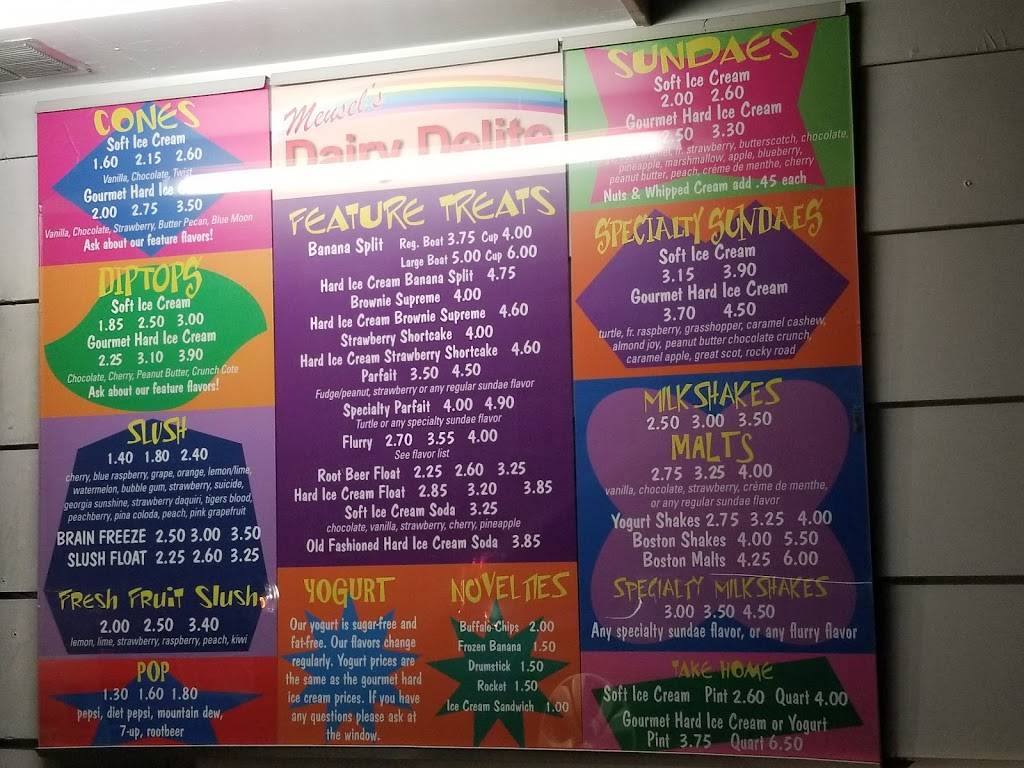 CONES
Soft Ice Cream
1.60 2.15 2.60
Vanilla, Chocolate, Twist
Gourmet Hard Ice
2.00 2.75 3.50
Vanilla, Chocolate, Strawberry, Butter Pecan, Blue Moon
Ask about our feature flavors!
DIPTOPS
Soft Ice Cream
1.85 2.50 3.00
Gourmet Hard Ice Cream
2.25 3.10 3.90
Chocolate, Cherry, Peanut Butter, Crunch Cote
Ask about our feature flavors!
SLUSH
1.40 1.80 2.40
cherry, blue raspberry, grape, orange, lemon/lime,
watermelon, bubble gum, strawberry, suicide,
georgia sunshine, strawberry daquiri, tigers blood,
peachberry, pina coloda, peach, pink grapefruit
BRAIN FREEZE 2.50 3.00 3.50
SLUSH FLOAT 2.25 2.60 3.25
Fresh Fruit Slush
2.00 2.50 3.40
lemon, lime, strawberry, raspberry, peach, kiwi
POP
1.30 1.60 1.80
pepsi, diet pepsi, mountain dew,
7-up, rootbeer
Meusel's
Dairy Delite
FEATURE TREATS
Banana Split Reg. Boat 3.75 Cup 4.00
Large Boat 5.00 Cup 6.00
Hard Ice Cream Banana Split 4.75
Brownie Supreme 4.00
Hard Ice Cream Brownie Supreme 4.60
Strawberry Shortcake 4.00
Hard Ice Cream Strawberry Shortcake 4.60
Parfait 3.50 4.50
Fudge/peanut, strawberry or any regular sundae flavor
Specialty Parfait 4.00 4.90
Turtle or any specialty sundae flavor
Flurry 2.70 3.55 4.00
See flavor list
Root Beer Float 2.25 2.60 3.25
Hard Ice Cream Float 2.85 3.20 3.85
Soft Ice Cream Soda 3.25
chocolate, vanilla, strawberry, cherry, pineapple
Old Fashioned Hard Ice Cream Soda 3.85
YOGURT
Our yogurt is sugar-free and
fat-free. Our flavors change
regularly. Yogurt prices are
the same as the gourmet hard
ice cream prices. If you have
any questions please ask at
the window.
NOVELTIES
Buffalo Chips 2.00
Frozen Banana 1.50
Drumstick 1.50
Rocket 1.50
Ice Cream Sandwich 1.00
SUNDAES
Soft Ice Cream
2.00 2.60
Gourmet Hard Ice Cream
2.50 3.30
fr. strawberry, butterscotch, chocolate,
pineapple, marshmallow, apple, blueberry,
peanut butter, peach, créme de menthe, cherry
Nuts & Whipped Cream add .45 each
SPECIALTY SUNDAES
Soft Ice Cream
3.15 3.90
Gourmet Hard Ice Cream
3.70 4.50
turtle, fr. raspberry, grasshopper, caramel cashew,
almond joy, peanut butter chocolate crunch,
caramel apple, great scot, rocky road
MILKSHAKES
2.50 3.00 3.50
MALTS
2.75 3.25 4.00
vanilla, chocolate, strawberry, crème de menthe,
or any regular sundae flavor
Yogurt Shakes 2.75 3.25 4.00
Boston Shakes 4.00 5.50
Boston Malts 4.25 6.00
SPECIALTY MILKSHAKES
3.00 3.50 4.50
Any specialty sundae flavor, or any flurry flavor
TAKE HOME
Soft Ice Cream Pint 2.60 Quart 4.00
Gourmet Hard Ice Cream or Yogurt
Pint 3.75 Quart 6.50